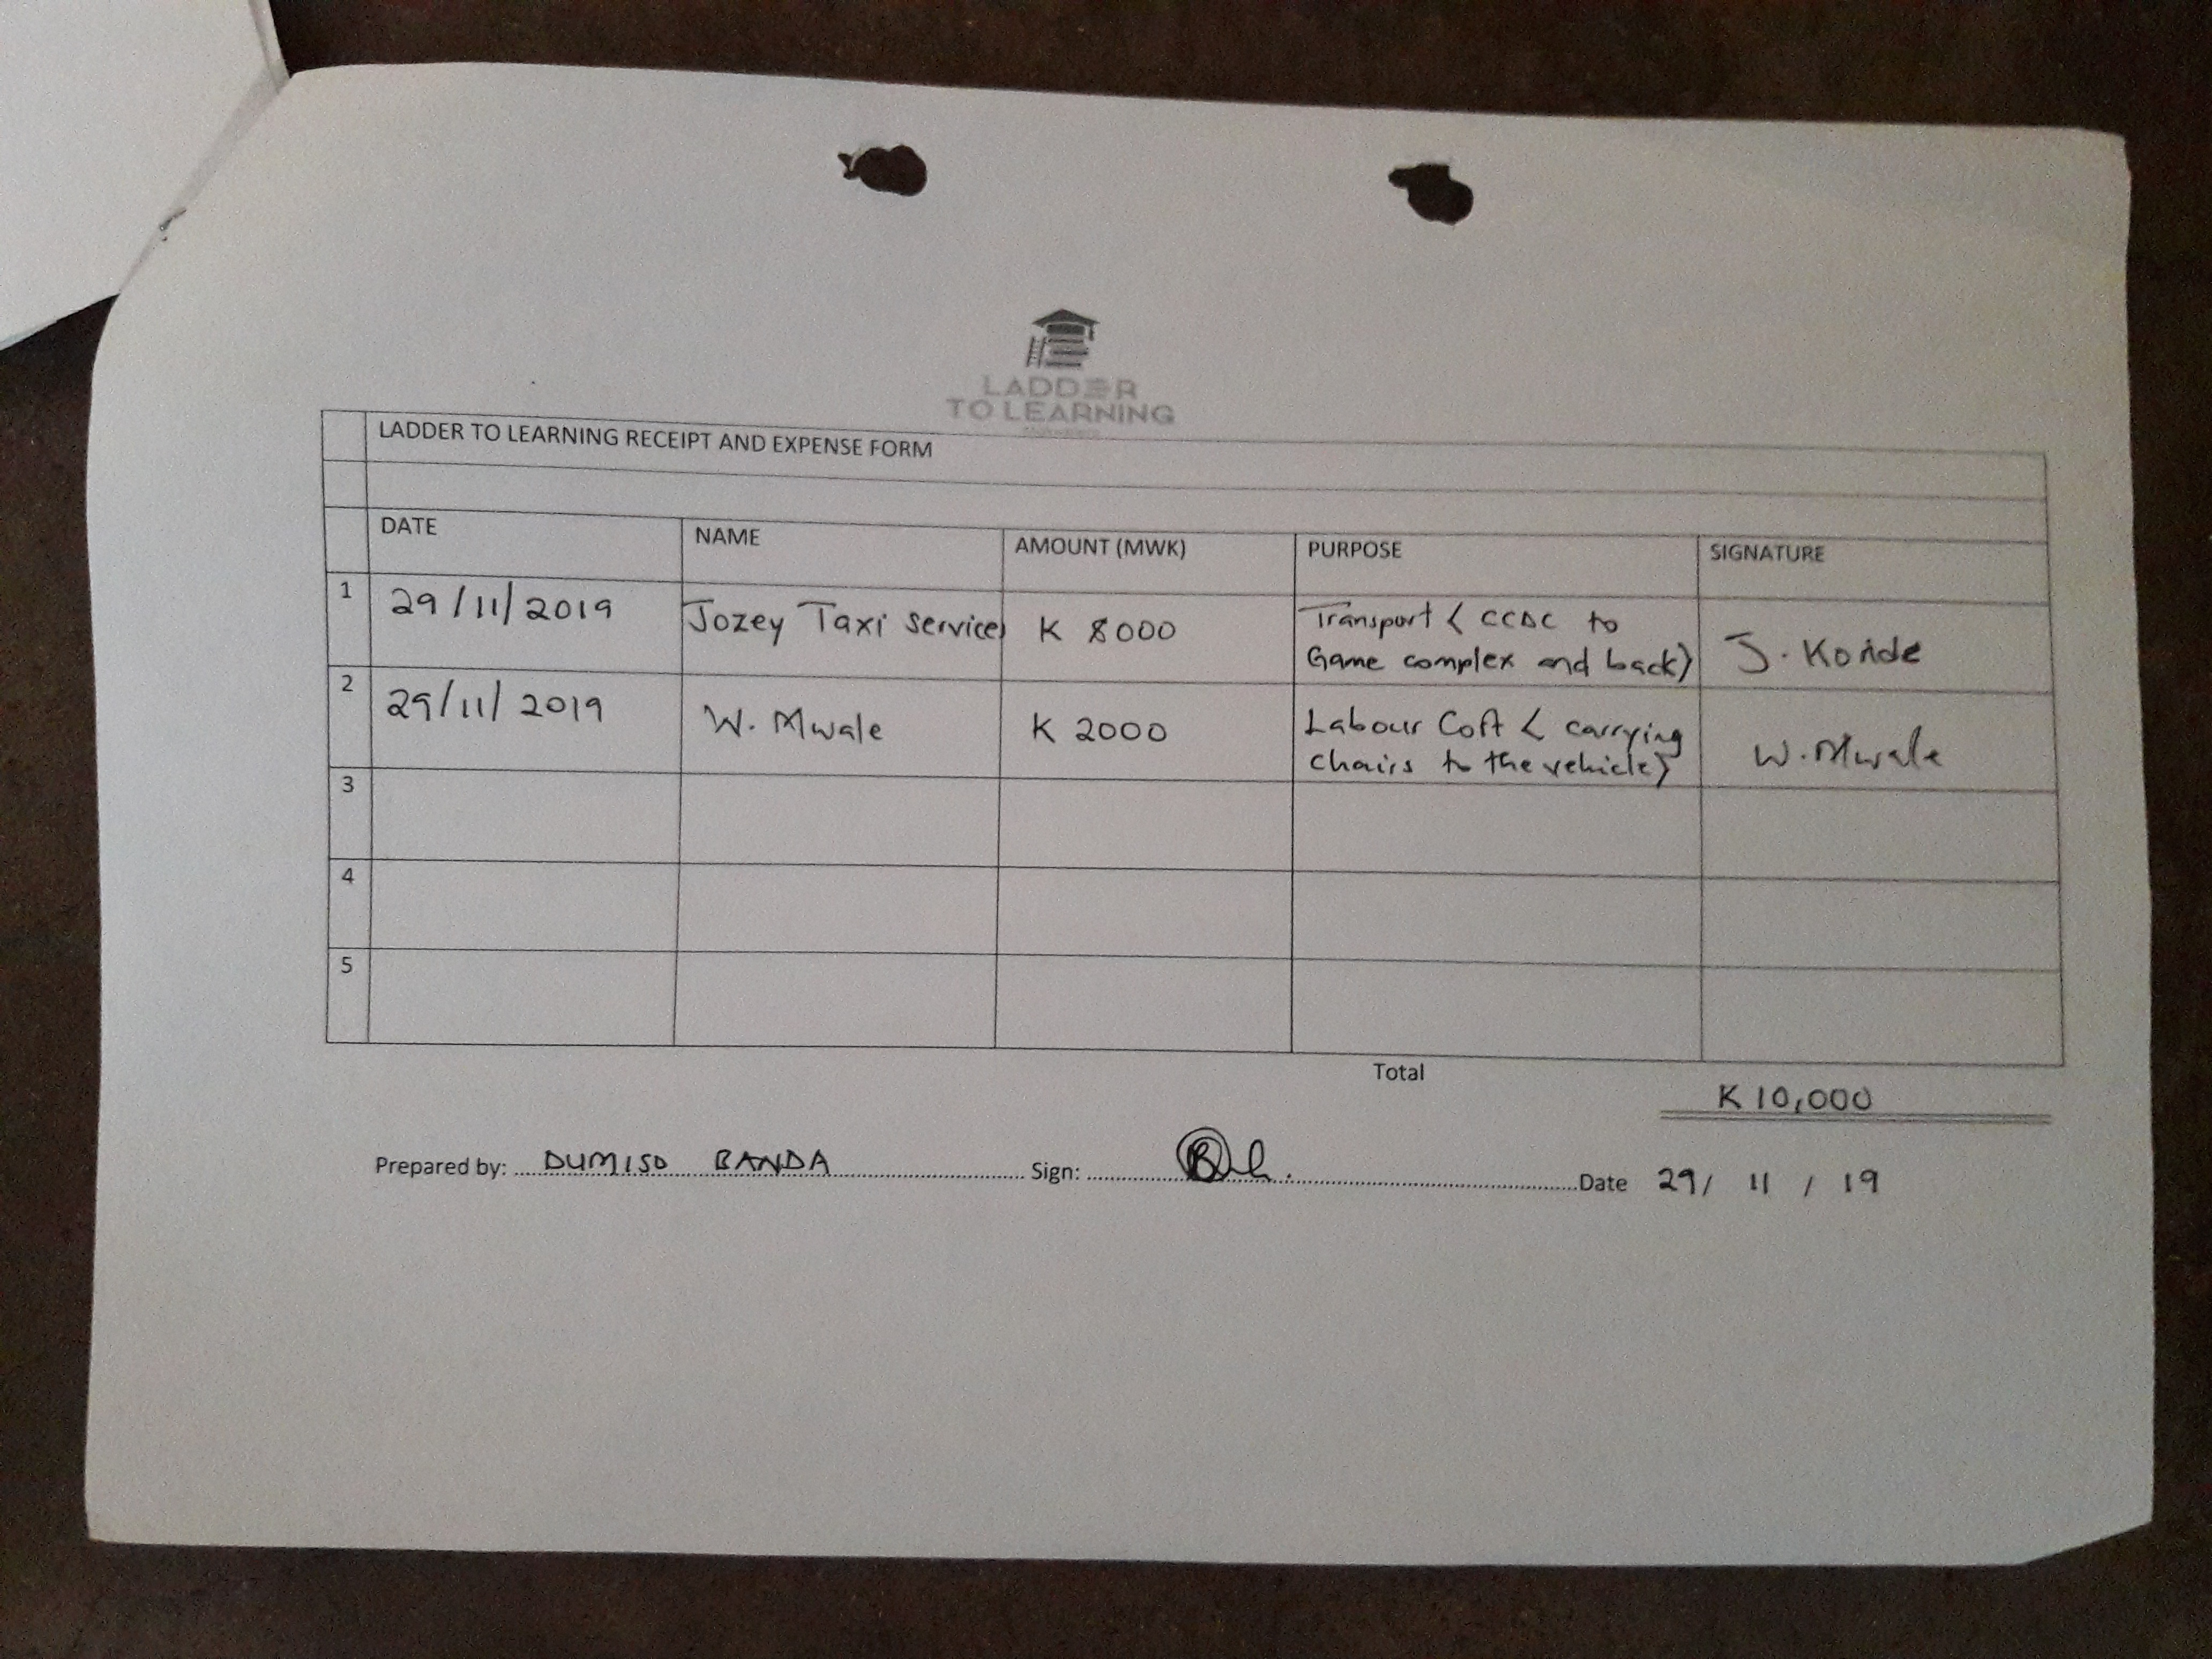 LADDER
TO LEARNING
LADDER TO LEARNING RECEIPT AND EXPENSE FORM
DATE NAME AMOUNT (MWK) PURPOSE SIGNATURE
1 29/11/2019 Jozey Taxi Services K 8000 Transport ( CCDC to
Game complex and back) J. Konde
2 29/11/2019 W. Mwale K 2000 Labour Cost ( carrying
chairs to the vehicle) W. Mwale
3
4
5
Total
K 10,000
Prepared by: DUMISO BANDA Sign: Date 29/ 11 / 19